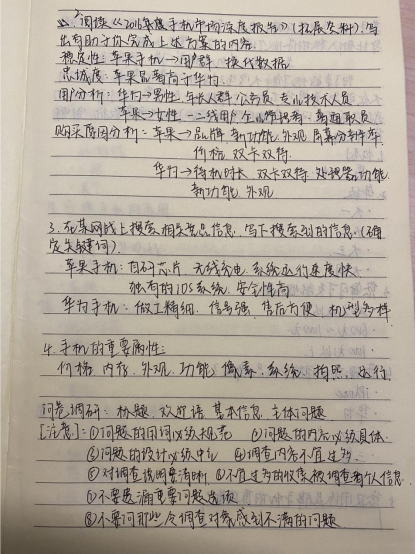 2. 阅读《2016年度手机市场深度报告》(拓展资料),写
出有助于你完成上述方案的内容。
稳定性:苹果手机→用户群、换代数据
忠诚度:苹果品牌高于华为
用户分析:华为→男性、年长人群、公务员、专业技术人员
苹果→女性、一二线用户、企业管理者、普通职员
购买原因分析:苹果→品牌、新功能、外观、屏幕分辨率、
价格、双卡双待
华为→待机时长、双卡双待、处理器、功能、
新功能、外观
3. 在某网站上搜索相关竞品信息,写下搜索到的信息(确
定关键词)。
苹果手机:自研芯片、无线充电、系统运行速度快
独有的IOS系统、安全性高
华为手机:做工精细、信号强、售后方便、机型多样
4. 手机的重要属性:
价格、内存、外观、功能、像素、系统、拍照、运行
问卷调研:标题、欢迎语、基本信息、主体问题
[注意]:①问题的用词必须规范 ②问题的内容必须具体
③问题的设计必须中心 ④调查内容不宜过多
⑤对调查说明要清晰 ⑥不宜过多的收集被调查者个人信息
⑦不要遗漏重要问题选项
⑧不要问那些令调查对象感到不满的问题